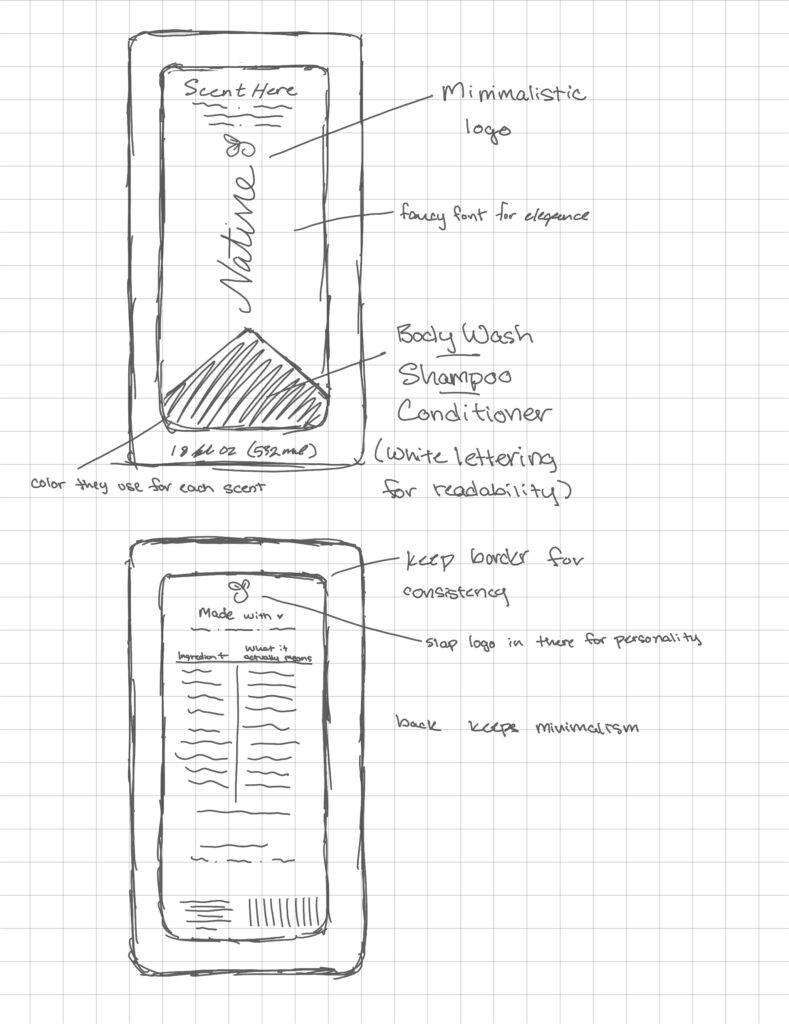 Scent Here
Native
18 fl oz (532ml)
Minimalistic
logo
fancy font for elegance
Body Wash
Shampoo
Conditioner
(White lettering
for readability)
color they use for each scent
Made with ♥
Ingredient
What it
actually means
keep border for
consistency
slap logo in there for personality
back keeps minimalism